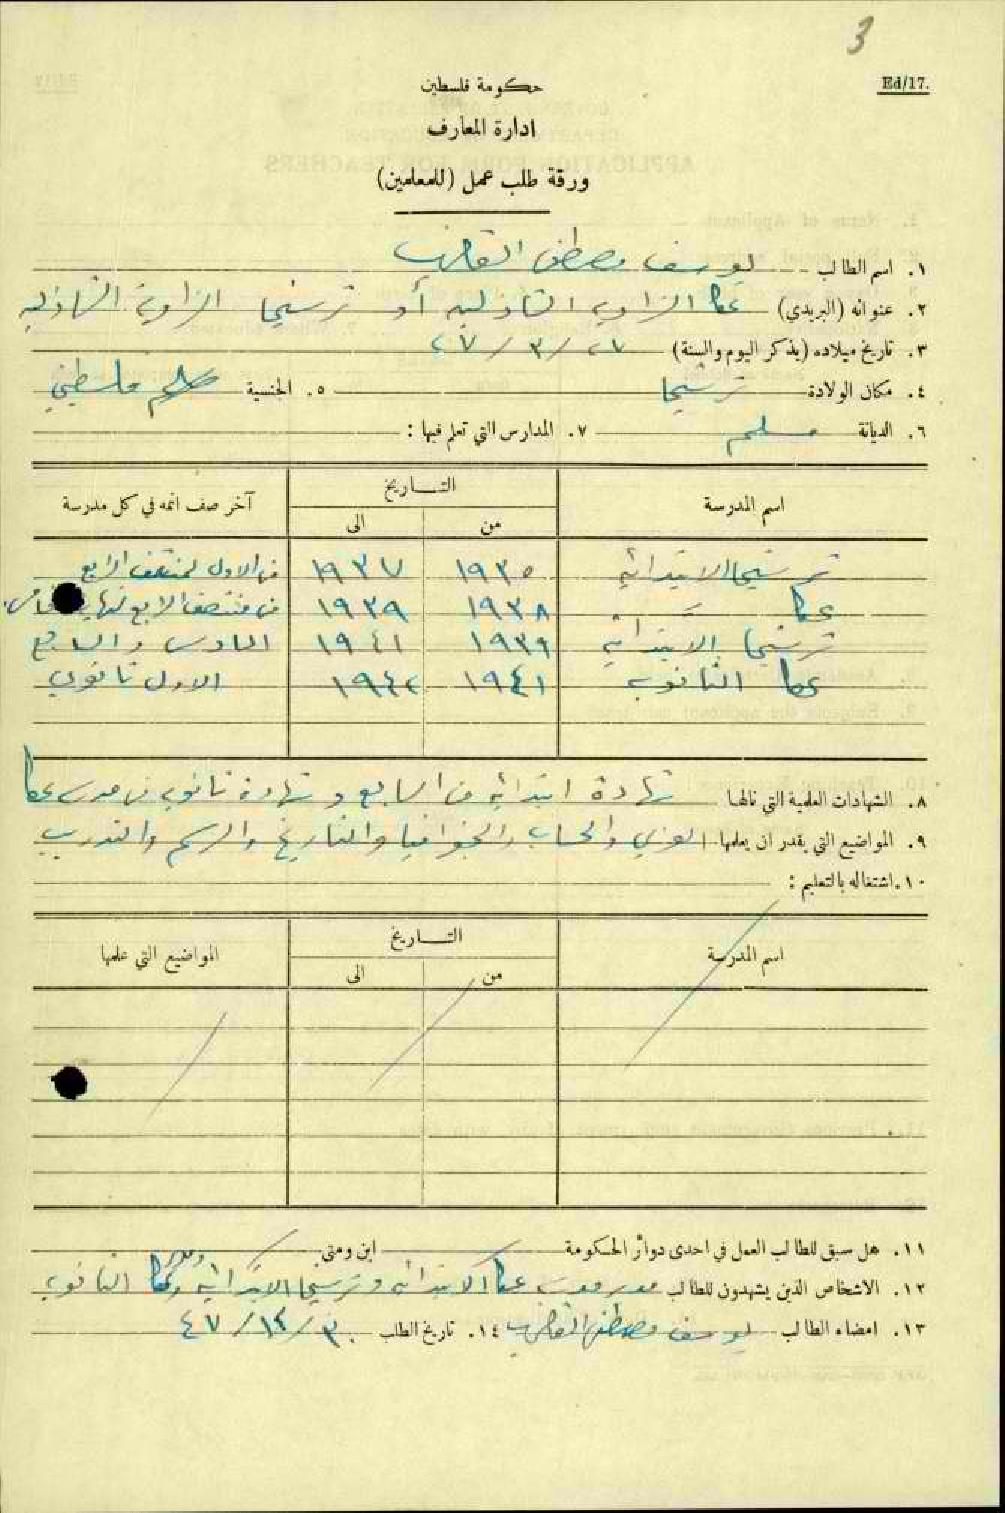 3
Ed/17.
حكومة فلسطين
ادارة المعارف
ورقة طلب عمل (للمعلمين)
١. اسم الطالب يوسف مصطفى
٢. عنوانه (البريدي) عكا الزاوية الشاذلية أو ترشيحا الزاوية الشاذلية
٣. تاريخ ميلاده (يذكر اليوم والسنة) ٢٧/٣/٢٧
٤. مكان الولادة ترشيحا ٥. الجنسية فلسطيني
٦. الديانة مسلم ٧. المدارس التي تعلم فيها :
اسم المدرسة التاريخ آخر صف اتمه في كل مدرسة
من الى
ترشيحا الابتدائية ١٩٣٥ ١٩٣٧ من الاول لمنتصف الرابع
عكا ١٩٣٨ ١٩٣٩ من منتصف الرابع لنهاية
ترشيحا الابتدائية ١٩٣٩ ١٩٤١ السادس والسابع
عكا الثانوية ١٩٤١ ١٩٤٢ الاول ثانوي
٨. الشهادات العلمية التي نالها شهادة ابتدائية من السابع وشهادة ثانوية من مدرسة عكا
٩. المواضيع التي يقدر ان يعلمها العربي والحساب والجغرافيا والتاريخ والرسم والتدريب
١٠. اشتغاله بالتعليم :
اسم المدرسة التاريخ المواضيع التي علمها
من الى
١١. هل سبق للطالب العمل في احدى دوائر الحكومة اين ومتى
١٢. الاشخاص الذين يشهدون للطالب مدير مدرسة عكا الابتدائية وترشيحا الابتدائية وعكا الثانوية
١٣. امضاء الطالب يوسف مصطفى ١٤. تاريخ الطلب ٣٠/١٢/٤٧